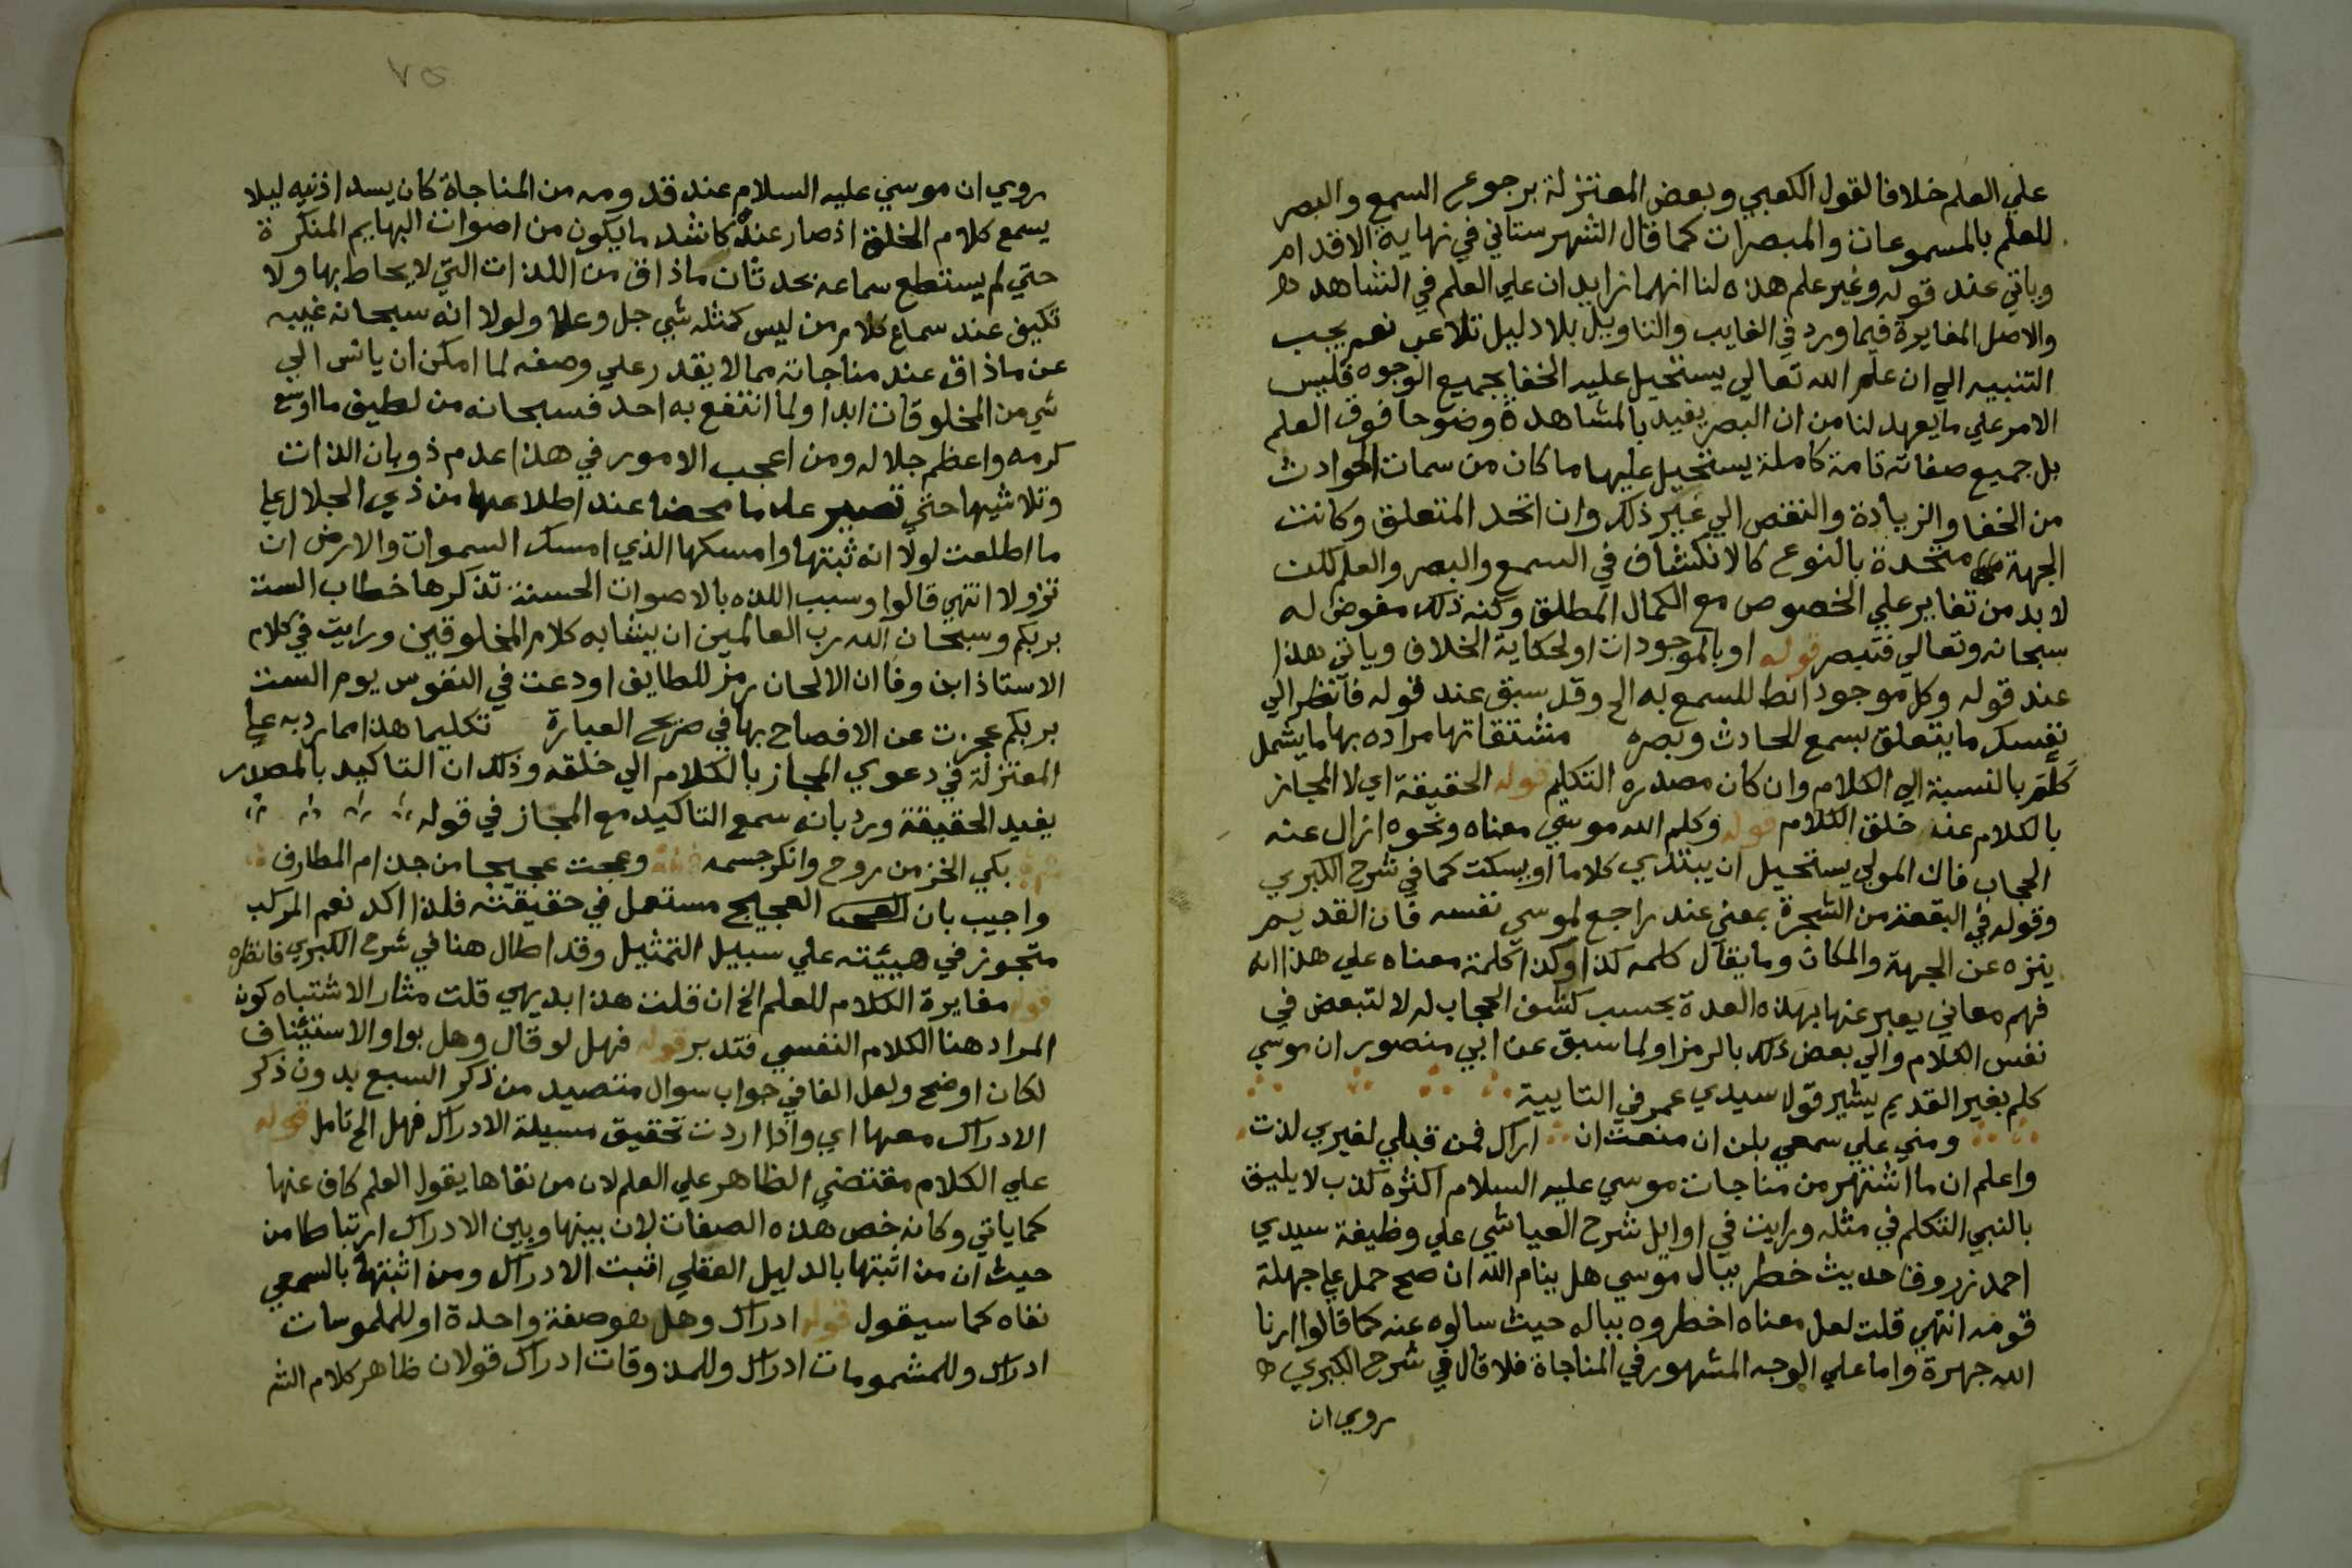 علي العلم خلافا لقول الكعبي وبعض المعتزلة برجوع السمع والبصر
للعلم بالمسموعات والمبصرات كما قال الشهرستاني في نهاية الاقدام
وياتي عند قوله وغير علم هذه لنا انهما زايدان علي العلم في الشاهد
والاصل المغايرة فيما ورد في الغايب والتاويل بلا دليل تلاعب نعم يجب
التنبيه الي ان علم الله تعالي يستحيل عليه الخفا بجميع الوجوه فليس
الامر علي ما يعهد لنا من ان البصر يفيد بالمشاهدة وضوحا فوق العلم
بل جميع صفاته تامة كاملة يستحيل عليها ما كان من سمات الحوادث
من الخفا والزيادة والنقص الي غير ذلك وان اتحد المتعلق وكانت
الجهة متحدة بالنوع كالانكشاف في السمع والبصر والعلم لكن
لا بد من تغاير علي الخصوص مع الكمال المطلق وكنه ذلك مفوض له
سبحانه وتعالي فتبصر قوله او بالموجودات او لحكاية الخلاف وياتي هذا
عند قوله وكل موجود انط للسمع به الخ وقد سبق عند قوله فانظر الي
نفسك ما يتعلق بسمع الحادث وبصره مشتقاتها مراده بها ما يشمل
كلم بالنسبة الي الكلام وان كان مصدره التكليم قوله الحقيقة اي لا المجاز
بالكلام عنه خلق الكلام قوله وكلم الله موسي معناه ونحوه ازال عنه
الحجاب فان المولي يستحيل ان يبتدي كلاما او يسكت كما في شرح الكبري
وقوله في البقعة من الشجرة بمعني عند راجع لموسي نفسه فان القديم
ينزه عن الجهة والمكان وما يقال كلمه كذا وكذا كلمة معناه علي هذا انه
فهم معاني يعبر عنها بهذه العدة بحسب كشف الحجاب له لا لتبعض في
نفس الكلام والي بعض ذلك بالرمز او لما سبق عن ابي منصور ان موسي
كلم بغير القديم يشير قول سيدي عمر في التايية
ومني علي سمعي بلن ان منعت ان اراك فمن قبلي لغيري لذت
واعلم ان ما اشتهر من مناجات موسي عليه السلام اكثره كذب لا يليق
بالنبي التكلم في مثله ورايت في اوايل شرح العياشي علي وظيفة سيدي
احمد زروق حديث خطر ببال موسي هل ينام الله ان صح حمل علي جهلة
قومه انتهي قلت لعل معناه اخطروه بباله حيث سالوه عنه كما قالوا ارنا
الله جهرة واما علي الوجه المشهور في المناجاة فلا قال في شرح الكبري
روي ان
٧٥
روي ان موسي عليه السلام عند قدومه من المناجاة كان يسد اذنيه ليلا
يسمع كلام الخلق اذ صار عنده كاشد ما يكون من اصوات البهايم المنكرة
حتي لم يستطع سماعه بحدثان ما ذاق من اللذات التي لا يحاط بها ولا
تكيف عند سماع كلام من ليس كمثله شي جل وعلا ولولا انه سبحانه غيبه
عن ما ذاق عند مناجاته مما لا يقدر علي وصفه لما امكن ان يانس الي
شي من المخلوقات ابدا ولما انتفع به احد فسبحانه من لطيف ما اوسع
كرمه واعظم جلاله ومن اعجب الامور في هذا عدم ذوبان الذات
وتلاشيها حتي تصير عدما محضا عند اطلاعها من ذي الجلال علي
ما اطلعت لولا انه ثبتها وامسكها الذي امسك السموات والارض ان
تزولا انتهي قالوا وسبب اللذه بالاصوات الحسنة تذكرها خطاب الست
بربكم وسبحان الله رب العالمين ان يشابه كلام المخلوقين ورايت في كلام
الاستاذ ابن وفا ان الالحان رمز للطايف اودعت في النفوس يوم الست
بربكم عجزت عن الافصاح بها في صريح العبارة تكليما هذا مما رد به علي
المعتزلة في دعوي المجاز بالكلام الي خلقه وذلك ان التاكيد بالمصدر
يفيد الحقيقة ورد بانه سمع التاكيد مع المجاز في قوله
بكي الخز من روح وانكر جسمه وعجت عجيجا من جذام المطارف
واجيب بان العجيج مستعمل في حقيقته فلذا اكد نعم المركب
متجوز في هيئته علي سبيل التمثيل وقد اطال هنا في شرح الكبري فانظره
قوله مغايرة الكلام للعلم الخ ان قلت هذا بديهي قلت مثار الاشتباه كون
المراد هنا الكلام النفسي فتدبر قوله فهل لو قال وهل بواو الاستئناف
لكان اوضح ولعل الفا في جواب سوال متصيد من ذكر السبع بدون ذكر
الادراك معها اي واذا اردت تحقيق مسيلة الادراك فهل الخ تامل قوله
علي الكلام مقتضي الظاهر علي العلم لان من نفاها يقول العلم كاف عنها
كما ياتي وكانه خص هذه الصفات لان بينها وبين الادراك ارتباطا من
حيث ان من اثبتها بالدليل العقلي اثبت الادراك ومن اثبتها بالسمعي
نفاه كما سيقول قوله ادراك وهل هو صفة واحدة او للملموسات
ادراك وللمشمومات ادراك وللمذوقات ادراك قولان ظاهر كلام الش